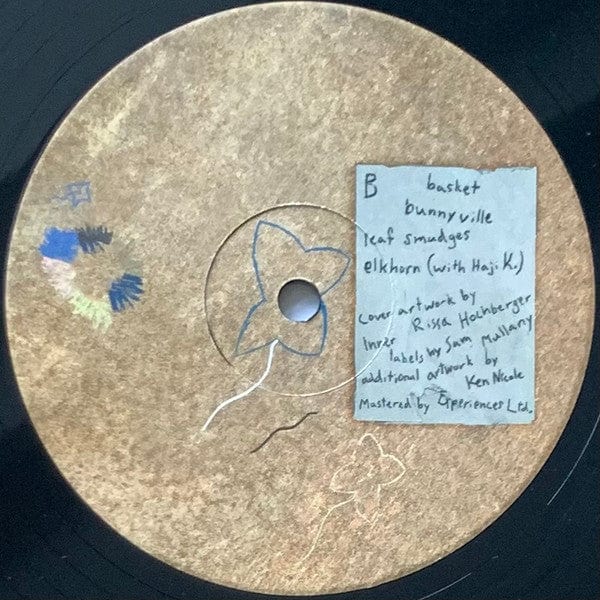 B basket
bunnyville
leaf smudges
elkhorn (with Haji K.)
Cover artwork by
Rissa Hochberger
Inner labels by Sam Mullany
additional artwork by
Ken Nicole
Mastered by Experiences Ltd.